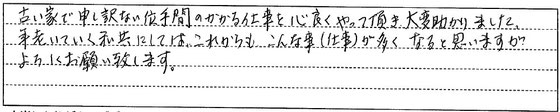 古い家で申し訳ない位手間のかかる仕事を心良くやって頂き大変助かりました。
年老いていく私共にしては、これからもこんな事(仕事)が多くなると思いますが
よろしくお願い致します。